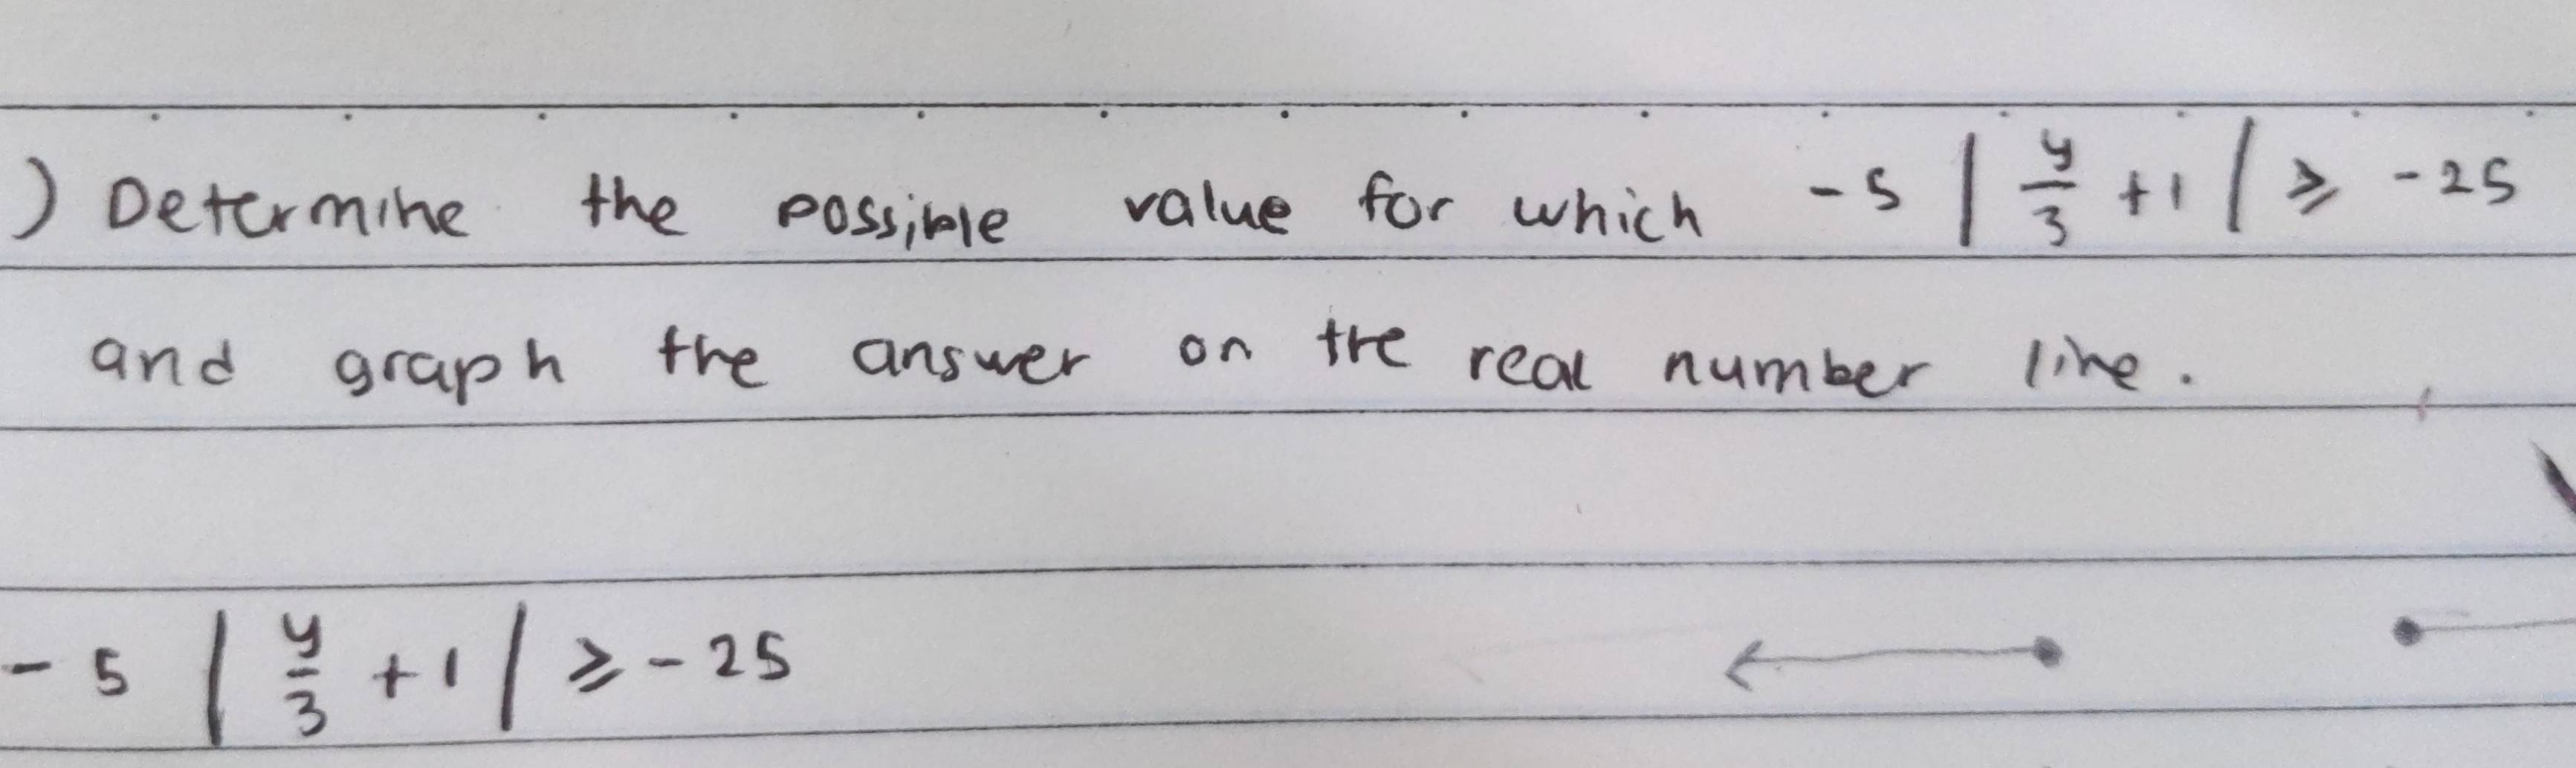 ) Determine the possible value for which -5 | y/3 +1 | ≥ -25
and graph the answer on the real number line.
-5 | y/3 +1 | ≥ -25